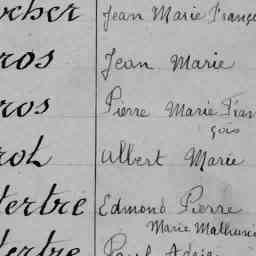 ocher Jean Marie Franço
ros Jean Marie
ros Pierre Marie Fran
çois
rol Albert Marie
tertre Edmond Pierre
Marie Mathurin
tertre Paul